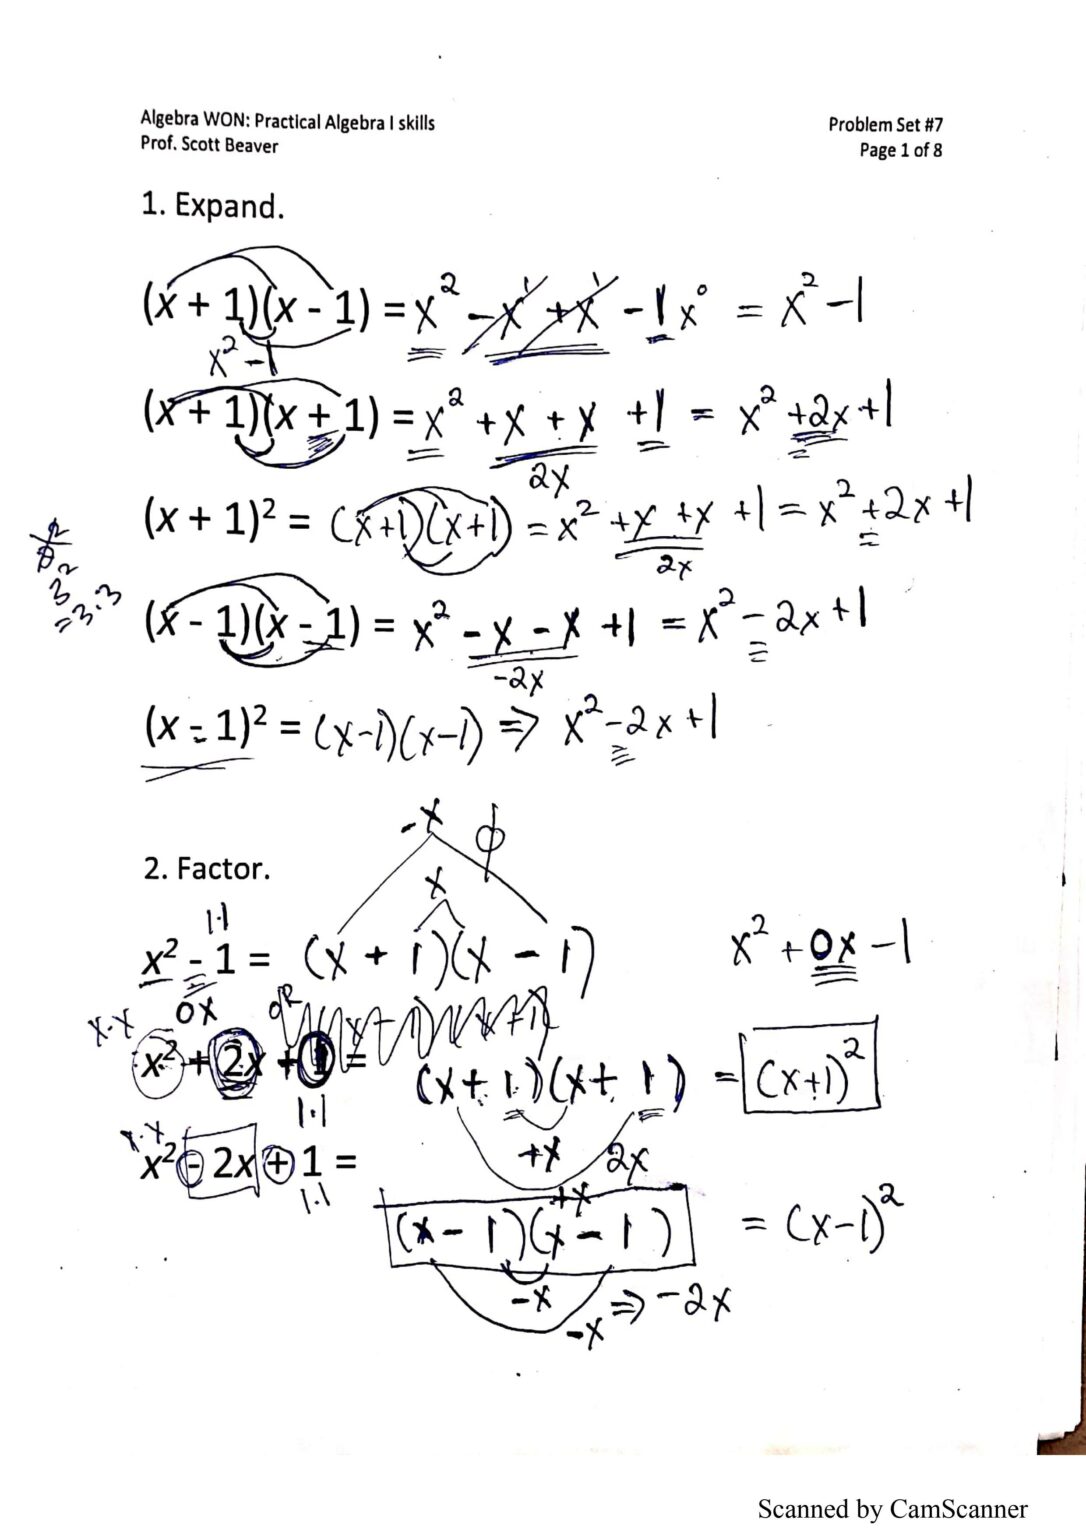 Algebra WON: Practical Algebra I skills
Prof. Scott Beaver
Problem Set #7
Page 1 of 8
1. Expand.
(x + 1)(x - 1) = x² - x¹ + x¹ - 1x⁰ = x² - 1
x² - 1
(x + 1)(x + 1) = x² + x + x + 1 = x² + 2x + 1
2x
(x + 1)² = (x+1)(x+1) = x² + x + x + 1 = x² + 2x + 1
2x
3²
= 3·3
(x - 1)(x - 1) = x² - x - x + 1 = x² - 2x + 1
-2x
(x - 1)² = (x-1)(x-1) ⇒ x² - 2x + 1
-x
x
2. Factor.
1·1
x² - 1 = (x + 1)(x - 1)
x² + 0x - 1
0x
OR
x·x
x² + 2x + 1 = (x + 1)(x + 1) = (x+1)²
1·1
+x 2x
+x
x·x
x² - 2x + 1 =
1·1
(x - 1)(x - 1) = (x-1)²
-x
-x ⇒ -2x
Scanned by CamScanner